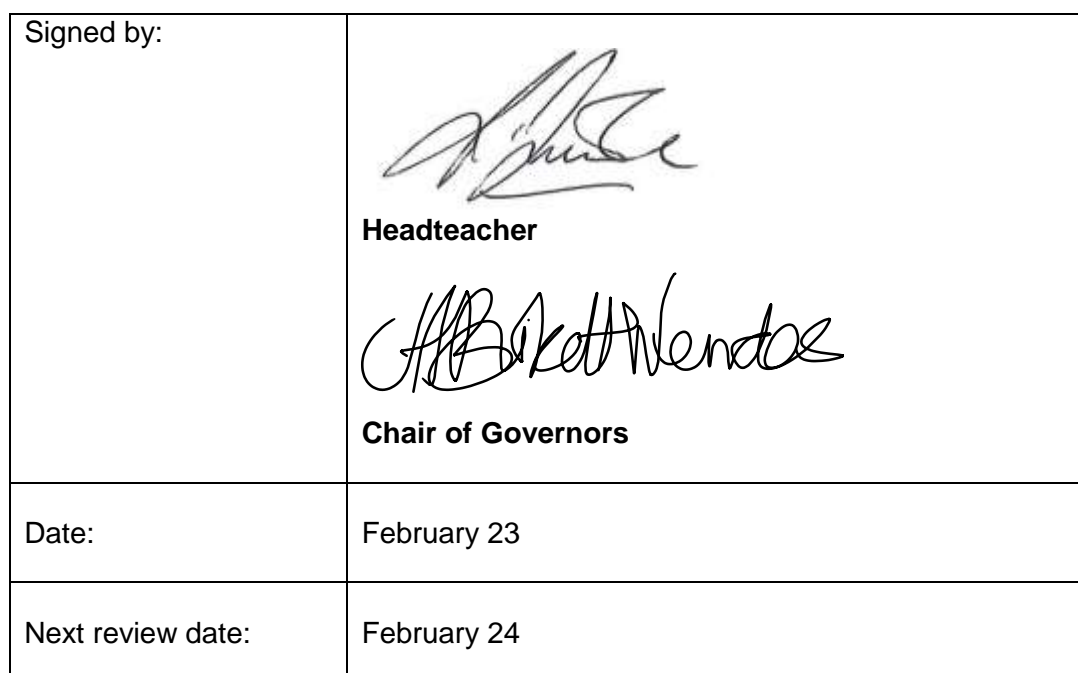 Signed by:
Headteacher
Chair of Governors
Date: February 23
Next review date: February 24